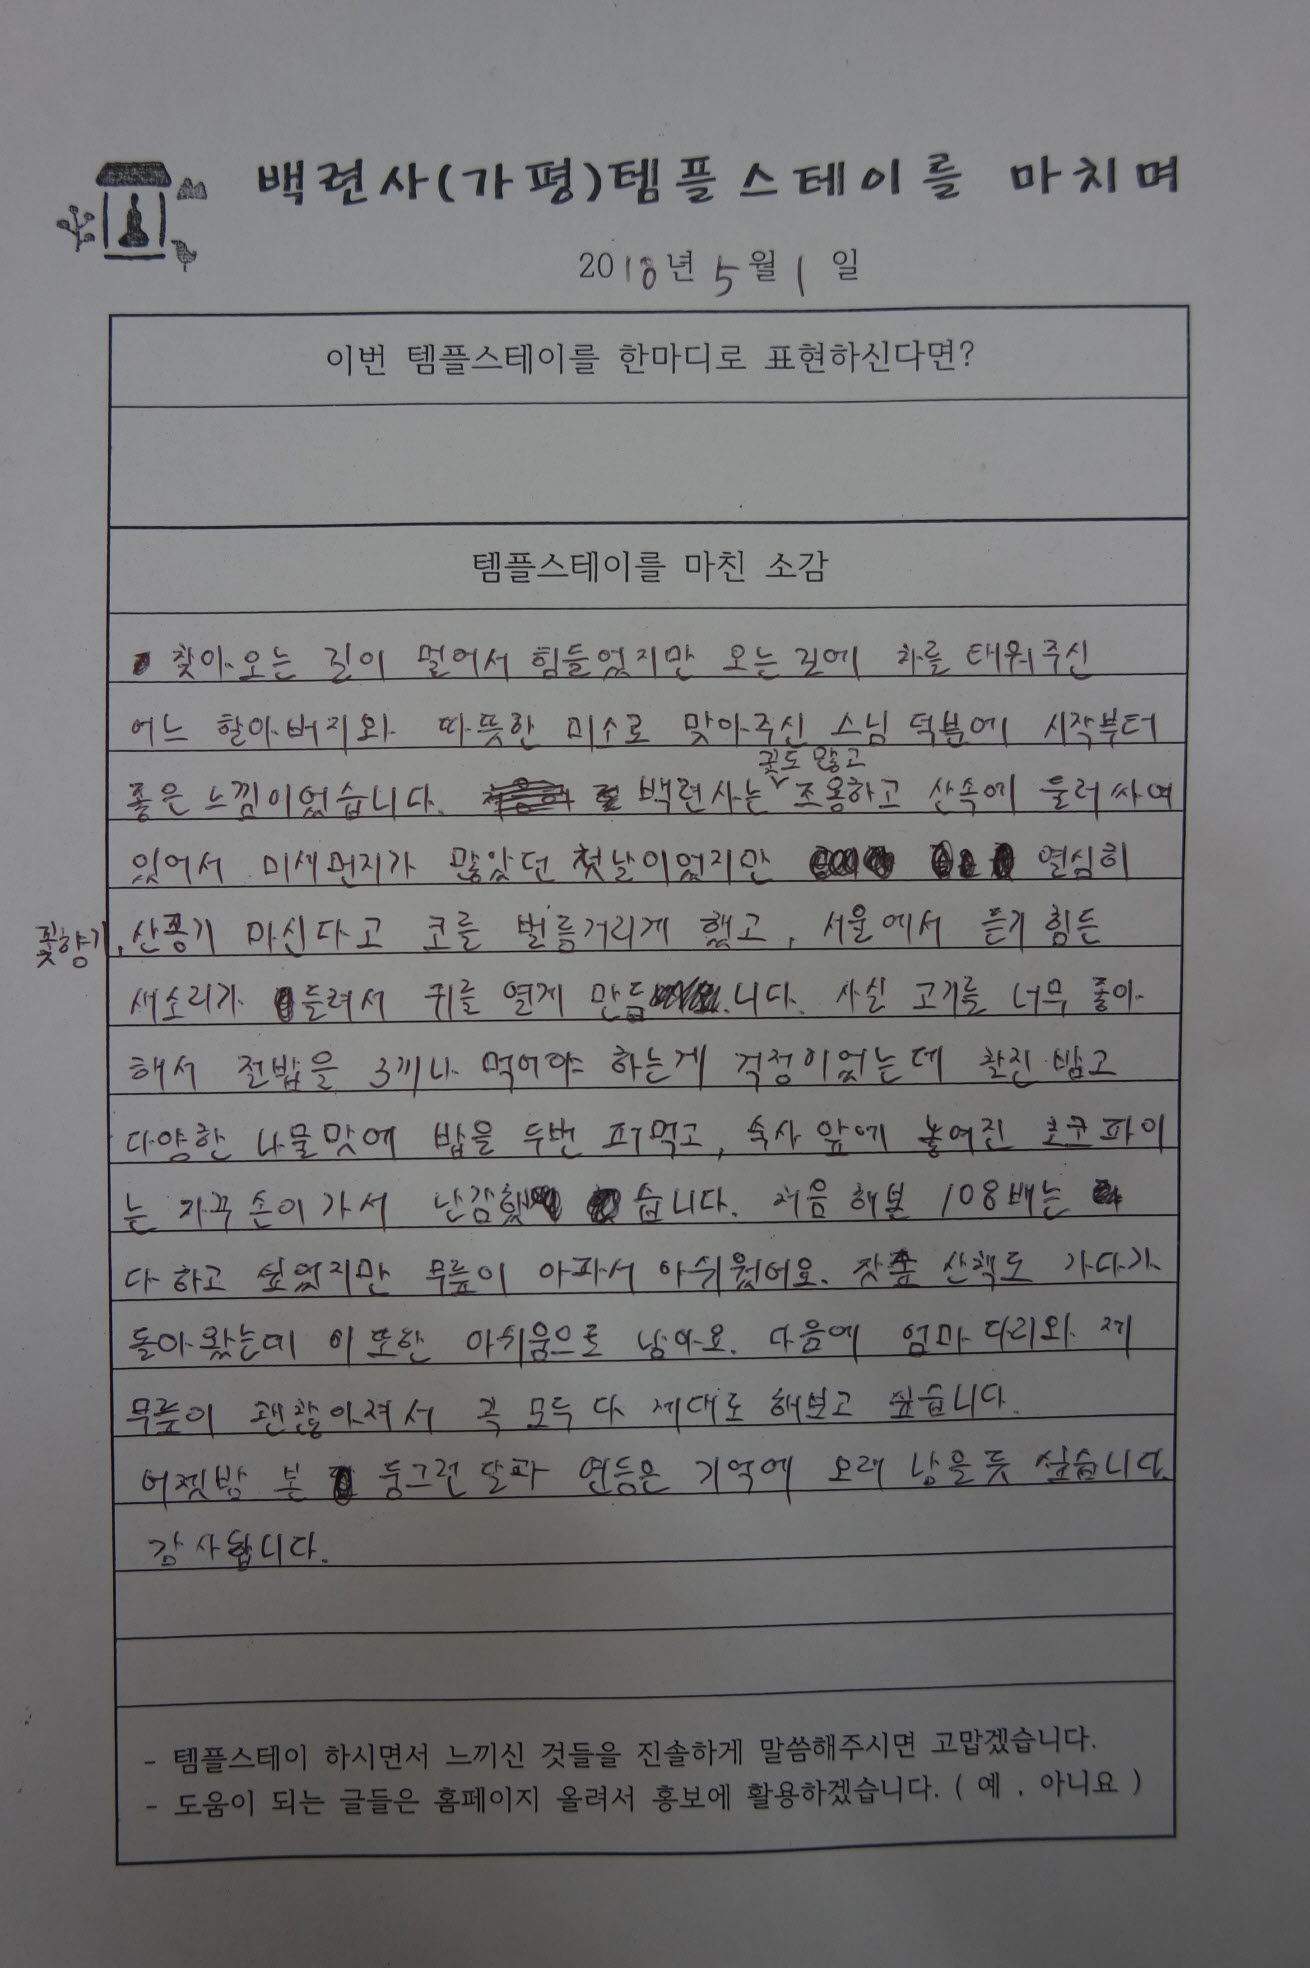 백련사(가평)템플스테이를 마치며
2018년 5월 1일
이번 템플스테이를 한마디로 표현하신다면?
템플스테이를 마친 소감
찾아오는 길이 멀어서 힘들었지만 오는 길에 차를 태워주신
어느 할아버지와 따뜻한 미소로 맞아주신 스님 덕분에 시작부터
꽃도 많고
좋은 느낌이었습니다. 백련사는 조용하고 산속에 둘러싸여
있어서 미세먼지가 많았던 첫날이었지만 열심히
꽃향기, 산공기 마신다고 코를 벌름거리게 했고, 서울에서 듣기 힘든
새소리가 들려서 귀를 열게 만듭니다. 사실 고기를 너무 좋아
해서 절밥을 3끼나 먹어야 하는게 걱정이었는데 찰진 밥고
다양한 나물맛에 밥을 두번 퍼먹고, 숙사 앞에 놓여진 초코파이
는 자꾸 손이가서 난감했습니다. 처음 해본 108배는
다 하고 싶었지만 무릎이 아파서 아쉬웠어요. 잣숲 산책도 가다가
돌아왔는데 이 또한 아쉬움으로 남아요. 다음에 엄마 다리와 제
무릎이 괜찮아져서 꼭 모두 다 제대로 해보고 싶습니다.
어젯밤 본 둥그런 달과 연등은 기억에 오래 남을듯 싶습니다.
감사합니다.
- 템플스테이 하시면서 느끼신 것들을 진솔하게 말씀해주시면 고맙겠습니다.
- 도움이 되는 글들은 홈페이지 올려서 홍보에 활용하겠습니다. ( 예 , 아니요 )